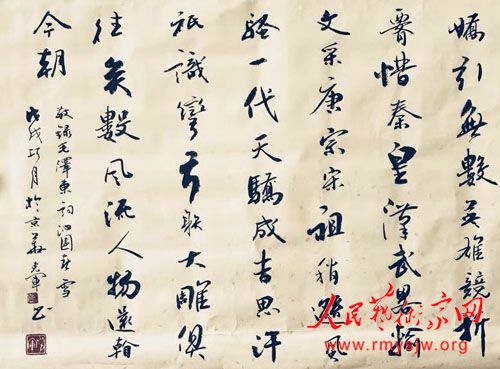 嬌引無數英雄競折
腰惜秦皇漢武畧輸
文采唐宗宋祖稍遜風
騷一代天驕成吉思汗
祇識彎弓射大雕俱
往矣數風流人物還看
今朝
敬錄毛澤東詞沁園春雪
戊戌巧月於京華克軍书
人民藝術家网
www.rmysjw.org